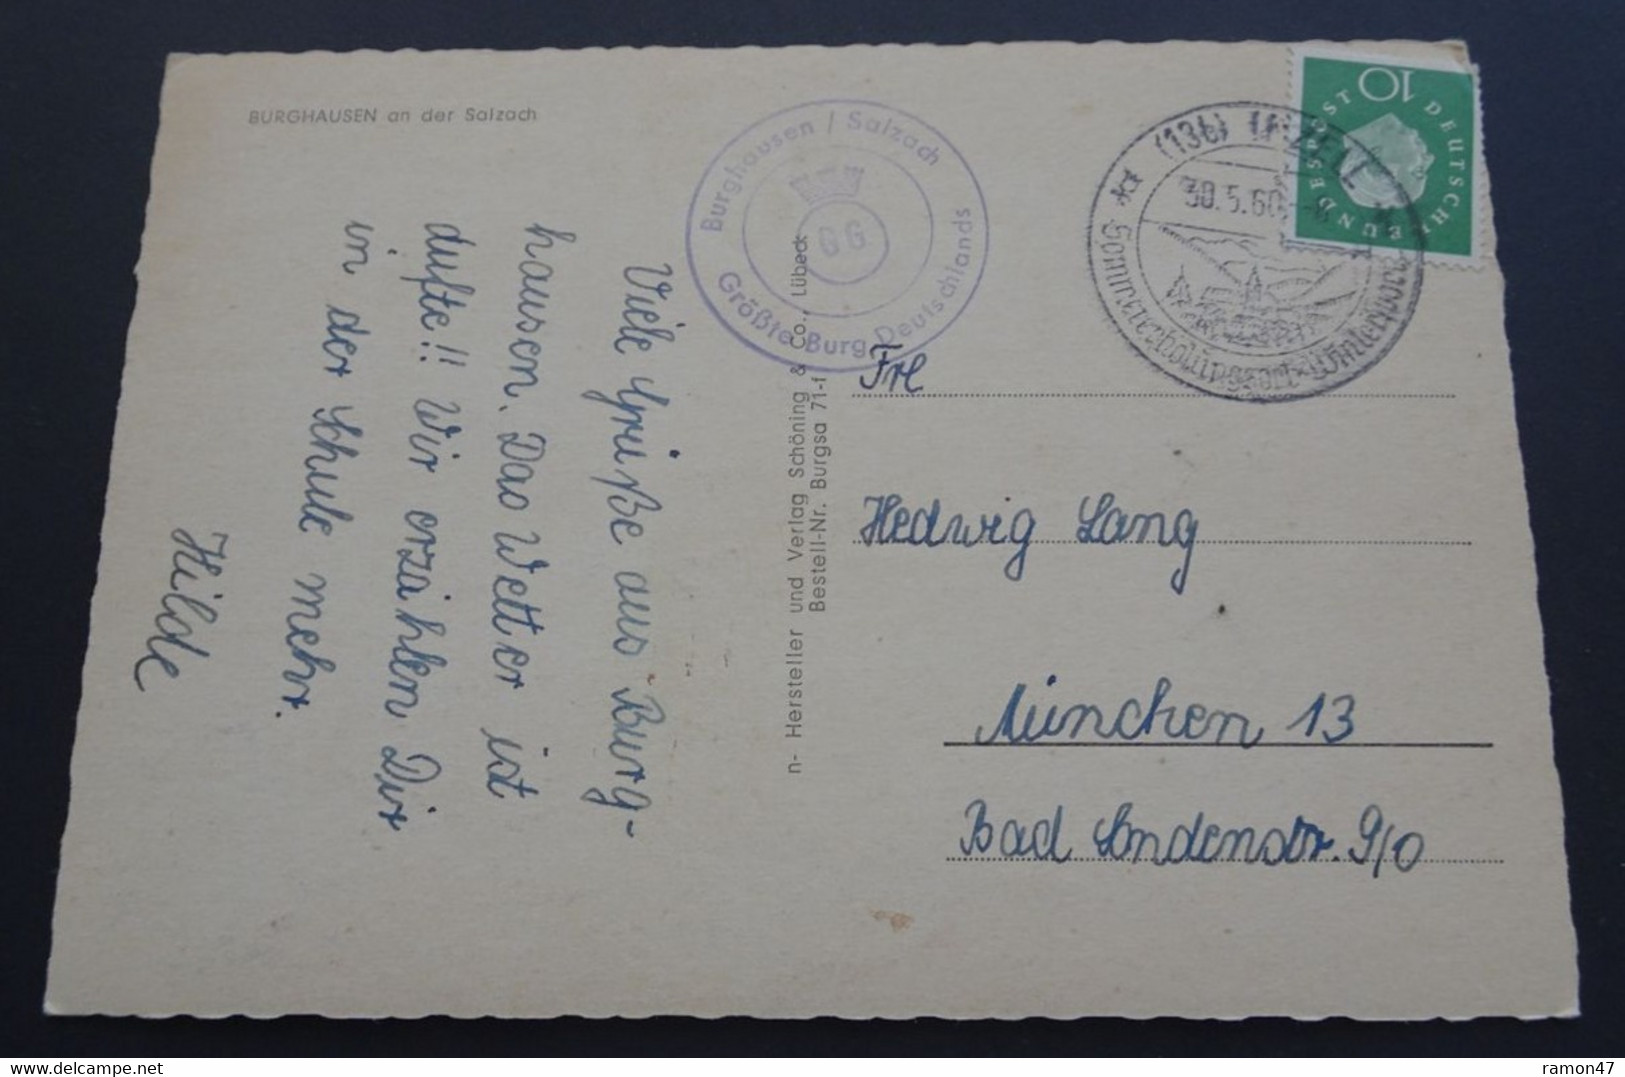 BURGHAUSEN an der Salzach
Burghausen / Salzach
G G
Größte Burg Deutschlands
Viele Grüße aus Burg-
hausen. Das Wetter ist
dufte!! Wir erzählen Dir
in der Schule mehr.
Hilde
n- Hersteller und Verlag Schöning & Co., Lübeck
Bestell-Nr. Burgsa 71-f
(13b) INZELL
30.5.60
Sommererholungsort-Wintersport
10
DEUTSCHE BUNDESPOST
Frl
Hedwig Lang
München 13
Bad 9/0
ramon47